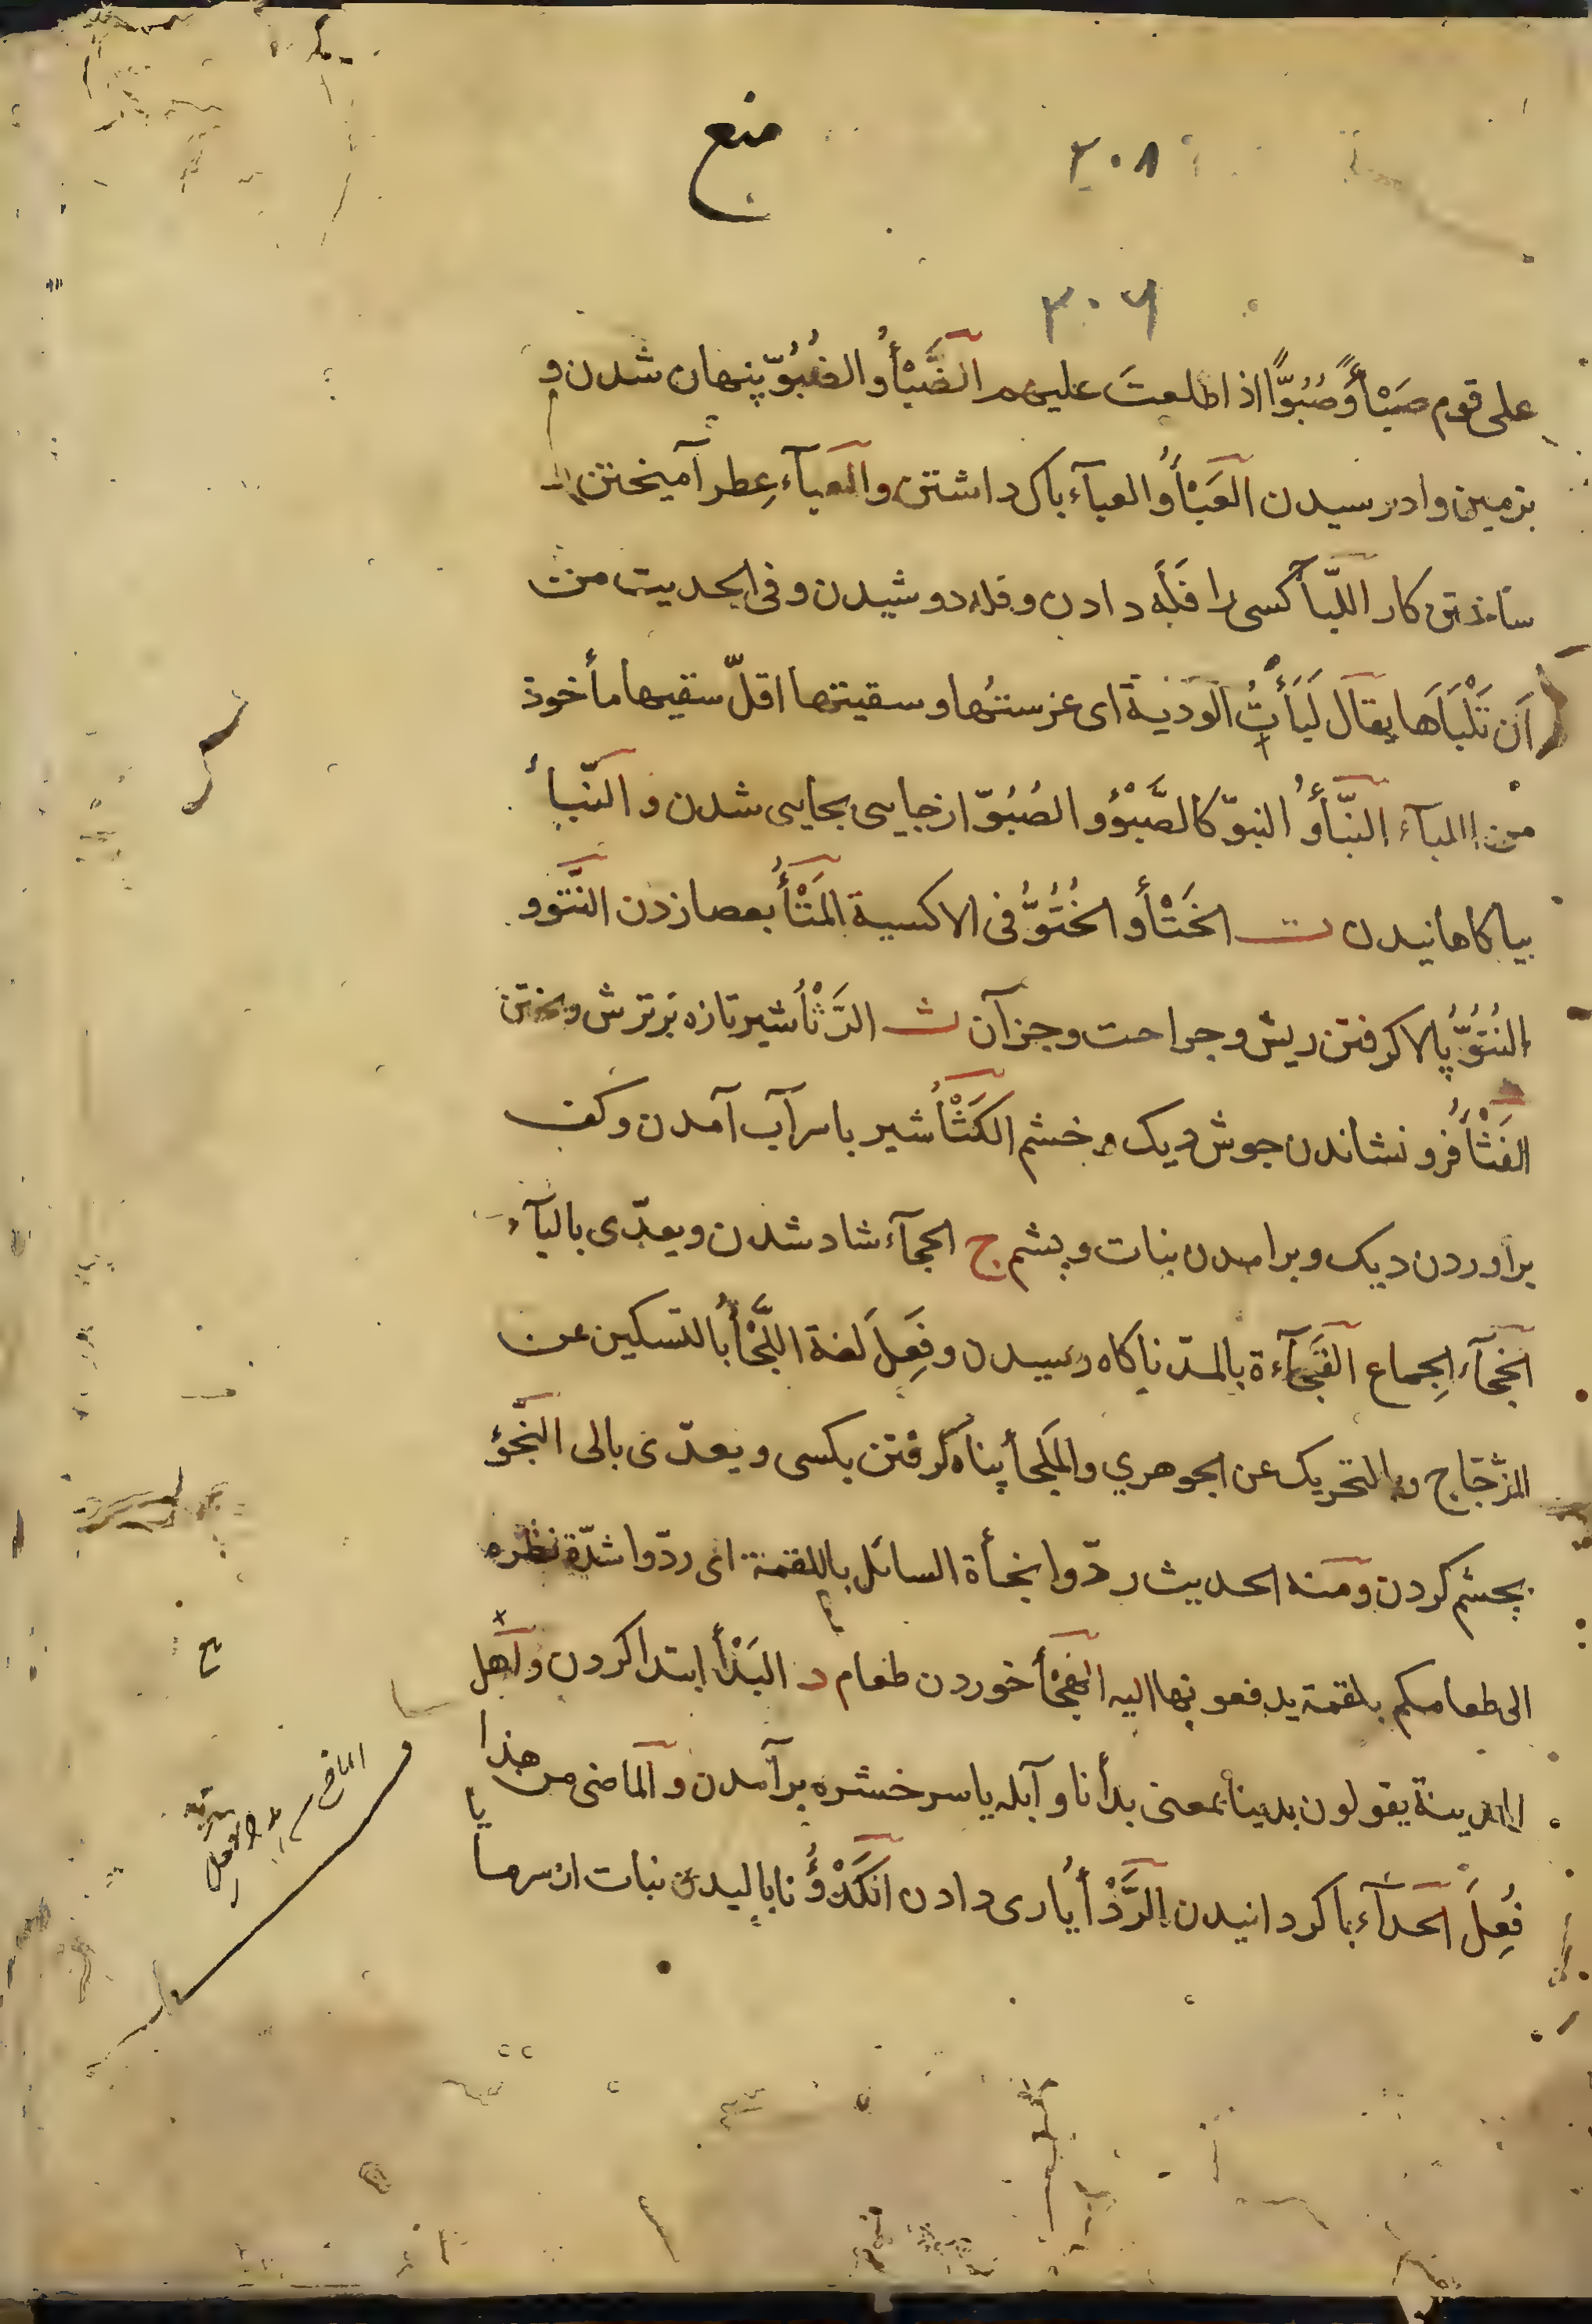 منع
۲۰۸
۳۰۶
على قوم صَبْأً وَصُبُوًّا اذا طلعتَ عليهم الضَّبْأُ و الضُبُوّ پنهان شدن و
بزمین وادرسیدن العَبْأُ و العبآء باک داشتن و العبآء عِطر آمیختن
ساختن کار اللّبأ کسی را فَلَه دادن و فله دوشیدن و فی الحدیث من
اَن تَلْبَاَهَا یقال لَبَأْتُ الوَدِيـة ای غرستُها و سقیتها اقلّ سقیها مأخوذ
من اللبآء النَّبْأُ و النبوّ کالصَّبْؤُ و الصُبُوّ از جایی بجایی شدن و النّبأ
بیاکاهانیدن ت الخَتْأُ و الخُتُوُّ فی الاکسیة المَتْأُ بعصا زدن النَّتو و
النُتُوُّ بالا کرفتن ریش و جراحت و جز آن ث الرَّثْأُ شیر تازه بَر ترش
الفَثْأُ فرو نشاندن جوش دیک و خشم الکَثْأُ شیر باسر آب آمدن و کف
برآوردن دیک و برامدن بنات و پشم ج الحجآء شاد شدن و یعدّی بالبآء
الخجآء الجِماع الفَجَآءة بالمدّ ناکاه رسیدن و فَعِلَ لغة اللَّجْأُ بالتسکین عن
الزّجّاج و بالتحریک عن الجوهري و المَلجأ پناه کرفتن بکسی و یعدّی بالی النَّجْؤ
بچشم کردن و منه الحدیث ردّوا نجأة السائل باللقمة ای ردّوا شدّة نظره
الی طعامکم بلقمة یدفعونها الیه الهَجْأُ خوردن طعام د البَدْأُ ابتدا کردن و اَهل
المدینة یقولون بدینا بمعنی بدأنا و آبله یا سرخشره برآمدن و الماضی من هذا
فُعِلَ الحَدآء باکردانیدن الرَّدْأُ یاری دادن الکَدْؤُ نابالیدن نبات از سرما یا